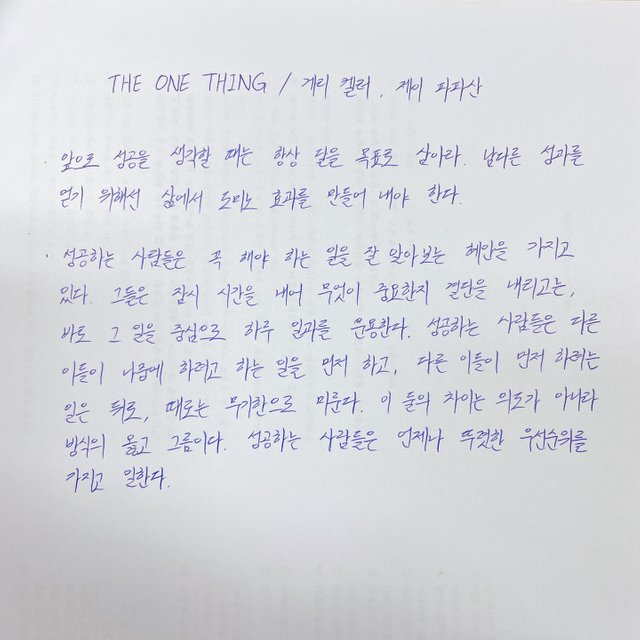 THE ONE THING / 게리 켈러, 제이 파파산
· 앞으로 성공을 생각할 때는 항상 달을 목표로 삼아라. 남다른 성과를
얻기 위해선 삶에서 도미노 효과를 만들어 내야 한다.
· 성공하는 사람들은 꼭 해야 하는 일을 잘 알아보는 혜안을 가지고
있다. 그들은 잠시 시간을 내어 무엇이 중요한지 결단을 내리고는,
바로 그 일을 중심으로 하루 일과를 운용한다. 성공하는 사람들은 다른
이들이 나중에 하려고 하는 일을 먼저 하고, 다른 이들이 먼저 하려는
일은 뒤로, 때로는 무기한으로 미룬다. 이 둘의 차이는 의도가 아니라
방식의 옳고 그름이다. 성공하는 사람들은 언제나 뚜렷한 우선순위를
가지고 일한다.